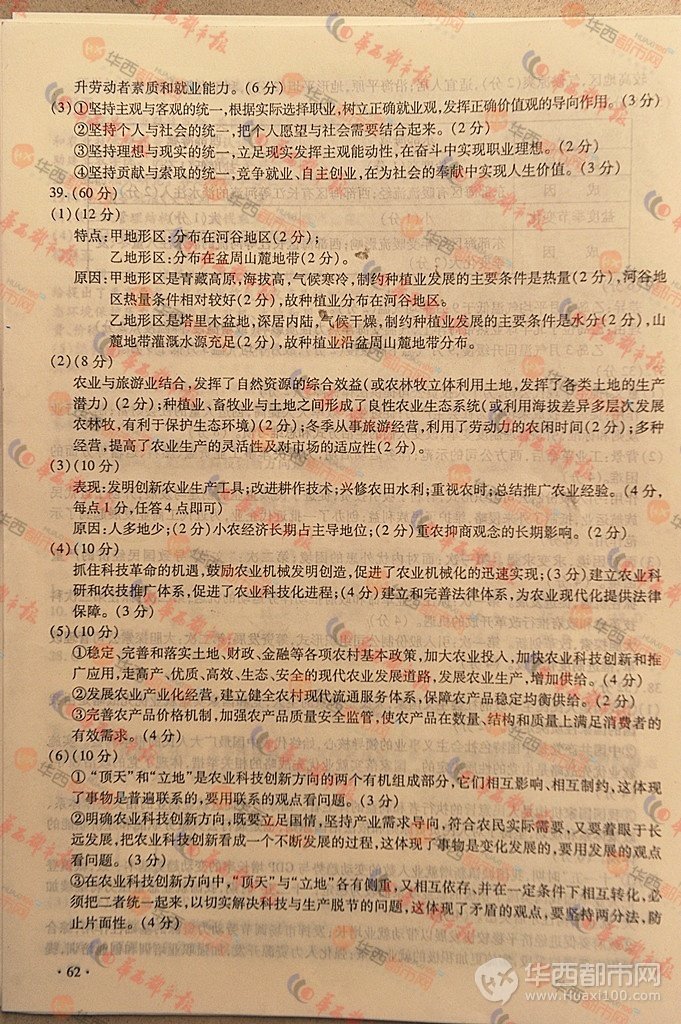 升劳动者素质和就业能力。(6分)
(3)①坚持主观与客观的统一,根据实际选择职业,树立正确就业观,发挥正确价值观的导向作用。(3分)
②坚持个人与社会的统一,把个人愿望与社会需要结合起来。(2分)
③坚持理想与现实的统一,立足现实发挥主观能动性,在奋斗中实现职业理想。(2分)
④坚持贡献与索取的统一,竞争就业、自主创业,在为社会的奉献中实现人生价值。(3分)
39.(60分)
(1)(12分)
特点:甲地形区:分布在河谷地区(2分);
乙地形区:分布在盆周山麓地带(2分)。
原因:甲地形区是青藏高原,海拔高,气候寒冷,制约种植业发展的主要条件是热量(2分),河谷地
区热量条件相对较好(2分),故种植业分布在河谷地区。
乙地形区是塔里木盆地,深居内陆,气候干燥,制约种植业发展的主要条件是水分(2分),山
麓地带灌溉水源充足(2分),故种植业沿盆周山麓地带分布。
(2)(8分)
农业与旅游业结合,发挥了自然资源的综合效益(或农林牧立体利用土地,发挥了各类土地的生产
潜力)(2分);种植业、畜牧业与土地之间形成了良性农业生态系统(或利用海拔差异多层次发展
农林牧,有利于保护生态环境)(2分);冬季从事旅游经营,利用了劳动力的农闲时间(2分);多种
经营,提高了农业生产的灵活性及对市场的适应性(2分)。
(3)(10分)
表现:发明创新农业生产工具;改进耕作技术;兴修农田水利;重视农时;总结推广农业经验。(4分,
每点1分,任答4点即可)
原因:人多地少;(2分)小农经济长期占主导地位;(2分)重农抑商观念的长期影响。(2分)
(4)(10分)
抓住科技革命的机遇,鼓励农业机械发明创造,促进了农业机械化的迅速实现;(3分)建立农业科
研和农技推广体系,促进了农业科技化进程;(4分)建立和完善法律体系,为农业现代化提供法律
保障。(3分)
(5)(10分)
①稳定、完善和落实土地、财政、金融等各项农村基本政策,加大农业投入,加快农业科技创新和推
广应用,走高产、优质、高效、生态、安全的现代农业发展道路,发展农业生产,增加供给。(4分)
②发展农业产业化经营,建立健全农村现代流通服务体系,保障农产品稳定均衡供给。(2分)
③完善农产品价格机制,加强农产品质量安全监管,使农产品在数量、结构和质量上满足消费者的
有效需求。(4分)
(6)(10分)
①“顶天”和“立地”是农业科技创新方向的两个有机组成部分,它们相互影响、相互制约,这体现
了事物是普遍联系的,要用联系的观点看问题。(3分)
②明确农业科技创新方向,既要立足国情,坚持产业需求导向,符合农民实际需要,又要着眼于长
远发展,把农业科技创新看成一个不断发展的过程,这体现了事物是变化发展的,要用发展的观点
看问题。(3分)
③在农业科技创新方向中,“顶天”与“立地”各有侧重,又相互依存,并在一定条件下相互转化,必
须把二者统一起来,以切实解决科技与生产脱节的问题,这体现了矛盾的观点,要坚持两分法,防
止片面性。(4分)
·62·
华西都市网
www.Huaxi100.com